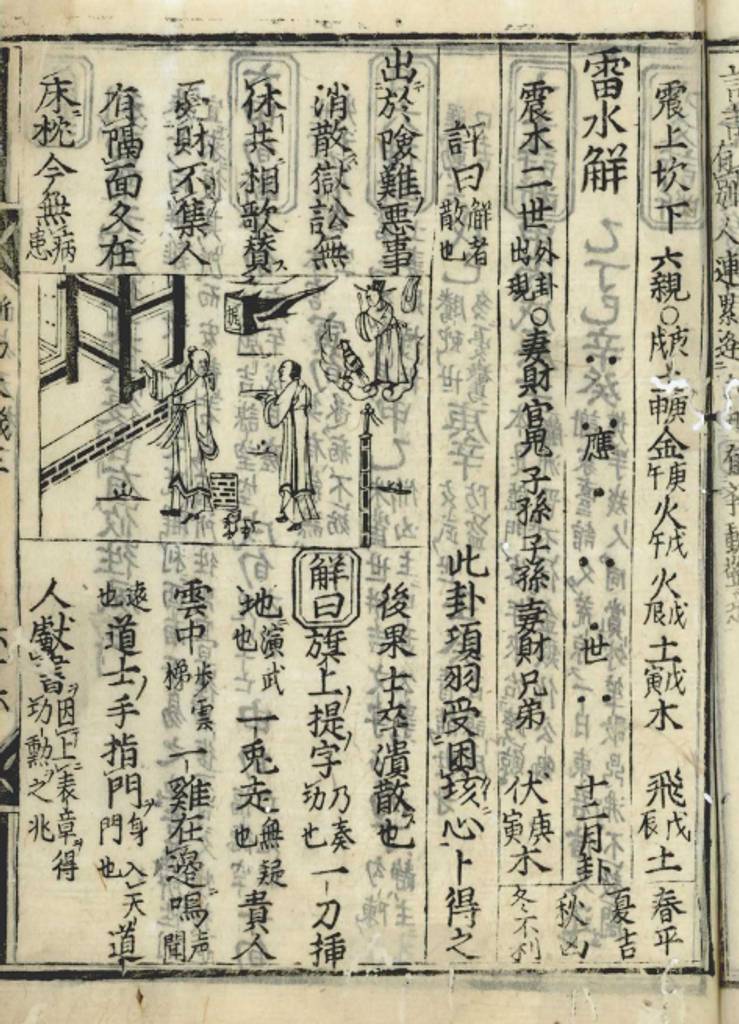 震上坎下 六親○庚戌土庚申金庚午火戊午火戊辰土戊寅木 飛戊辰土 春平
夏吉
雷水解 應 世 十二月卦 秋凶
震木二世外卦出現○妻財官鬼子孫子孫妻財兄弟 伏庚寅木 冬不利
評曰解者散也
此卦項羽受困垓心卜得之
出於險難惡事
後果士卒潰散也
消散獄訟無
休共相歌贊
憂財不集人
有隔面久在
床枕今無病患
解曰旗上提字乃奏功也一刀插
地演武也一兎走無疑也貴人
雲中步雲梯一雞在邊鳴声聞
遠也道士手指門身入天門也道
人獻書因上表章得功勲之兆